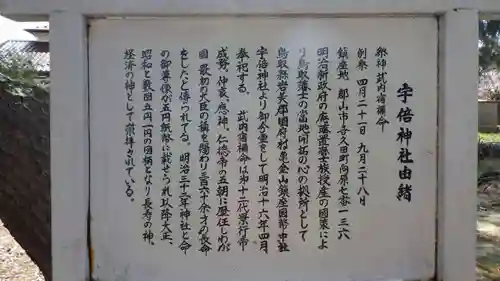 宇倍神社由緒
祭神 武内宿禰命
例祭 四月二十一日 九月二十八日
鎮座地 郡山市喜久田町向原七番一三六
明治新政府の廃藩置県士族授産の国策によ
り鳥取藩士の当地開拓の心の拠所として
鳥取県岩美郡国府村亀金山鎮座国幣中社
宇倍神社より御分霊をして明治十六年四月
奉祀する。 武内宿禰命は第十二代景行帝
成務、仲哀、應神、仁徳帝の五朝に歴任しわが
国最初の大臣の称を賜わり三百六十余才の長命
をしたと傳つれてる。明治三十二年神社と命
の御尊像が五円紙幣に載せられ以降大正、
昭和と数回五円一円の図柄となり長寿の神、
経済の神として崇拝されている。